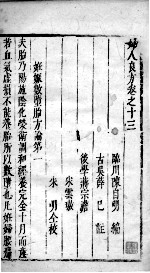 婦人良方卷之十三
臨川陳自明編
古吳薛己註
後學蔣宗澹
朱雲徵
朱明仝校
妊娠數墮胎方論第一
夫胎乃陽施陰化榮衛調和經養完全十月而產
若血氣虛損不能養胎所以數墮也凡妊婦腰痛